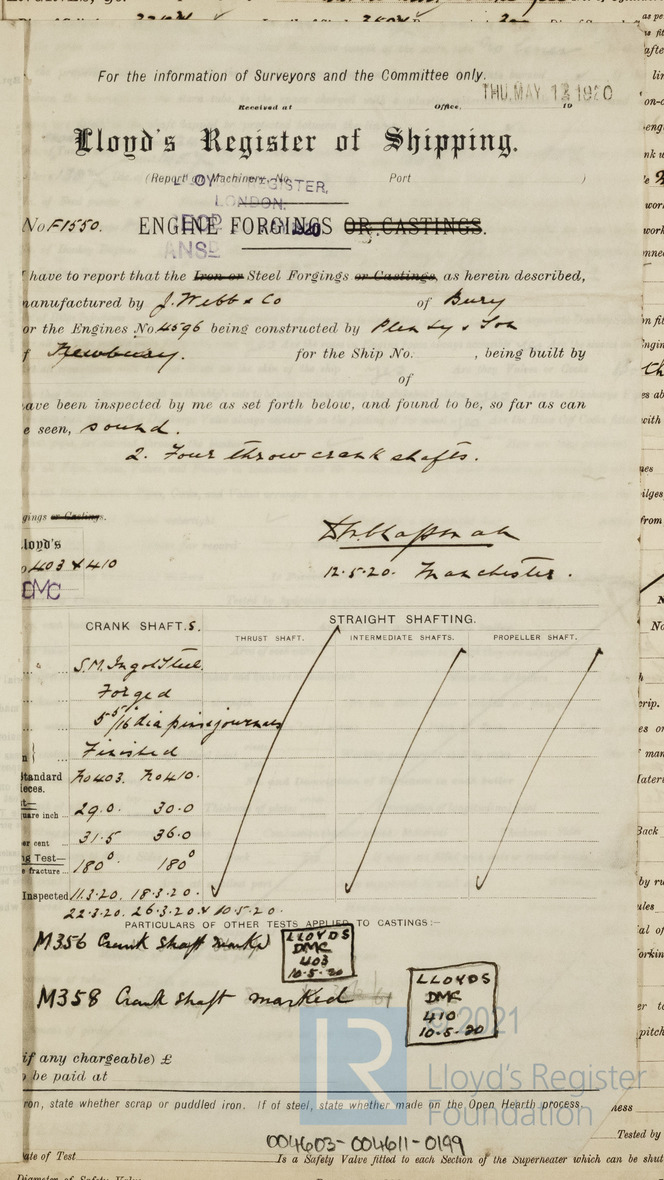 For the information of Surveyors and the Committee only.
THU. MAY 13 1920
Received at Office, 19
Lloyd's Register of Shipping.
(Report on Machinery, No. Port )
LLOYD'S REGISTER,
LONDON.
No F1550. ENGINE FORGINGS OR CASTINGS.
ANSD
have to report that the Iron or Steel Forgings or Castings, as herein described,
manufactured by J. Webb & Co of Bury
or the Engines No. 4596 being constructed by Plenty & Son
f Newbury. for the Ship No. , being built by
of
ave been inspected by me as set forth below, and found to be, so far as can
e seen, sound.
2. Four throw crank shafts.
gings or Castings.
loyd's
403 & 410
DMC
12.5.20. Manchester.
CRANK SHAFT.S. STRAIGHT SHAFTING.
THRUST SHAFT. INTERMEDIATE SHAFTS. PROPELLER SHAFT.
S.M. Ingot Steel.
Forged
5 5/16" dia pins & journals
Finished
Standard No 403. No 410.
eces.
uare inch 29.0. 30.0
er cent 31.5 36.0
g Test—
e fracture 180° 180°
Inspected 11.3.20. 18.3.20.
22.3.20. 26.3.20. & 10.5.20.
PARTICULARS OF OTHER TESTS APPLIED TO CASTINGS:—
M356 Crank shaft marked
LLOYDS
DMC
403
10-5-20
M358 Crank shaft marked
LLOYDS
DMC
410
10-5-20
© 2021
LR
Lloyd's Register
Foundation
if any chargeable) £
be paid at
ron, state whether scrap or puddled iron. If of steel, state whether made on the Open Hearth process.
Tested by
004603-004611-0199
ate of Test Is a Safety Valve fitted to each Section of the Superheater which can be shut
Diameter of Safety Valve